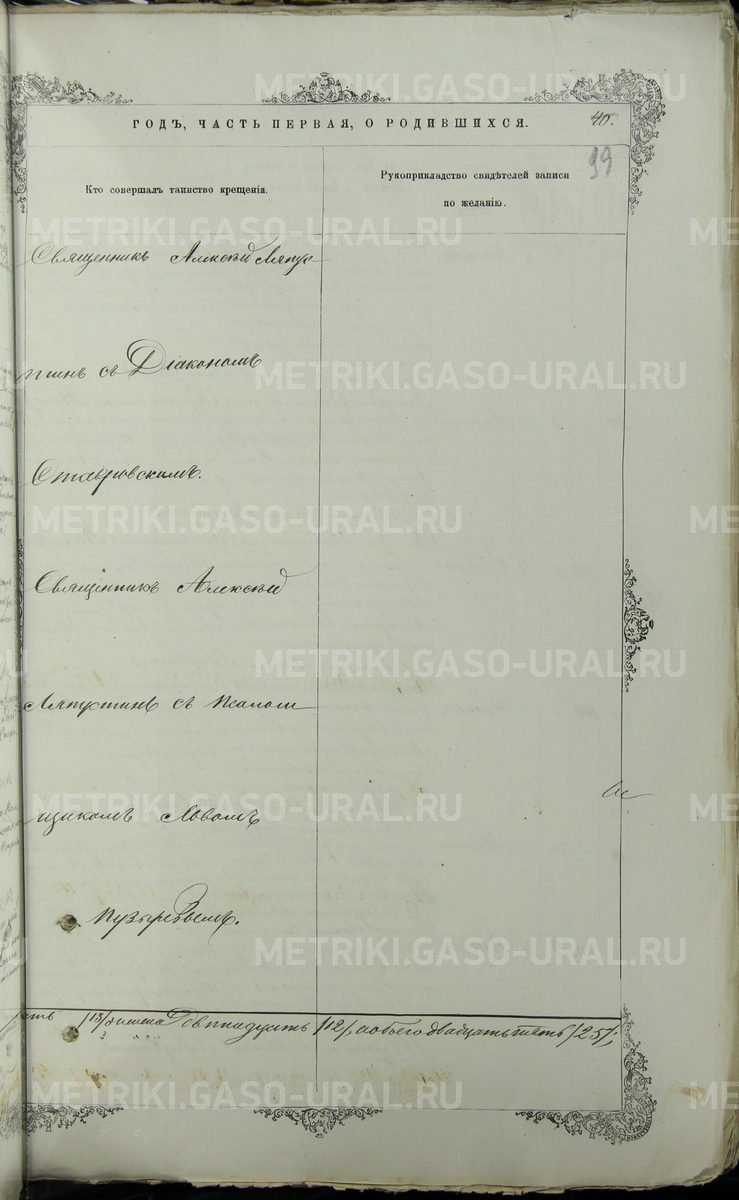 ГОДЪ, ЧАСТЬ ПЕРВАЯ, О РОДИВШИХСЯ.
40.
99
Кто совершалъ таинство крещенія.
Рукоприкладство свидѣтелей записи
по желанію.
Священникъ Алексѣй Ляпу-
стинъ съ Діакономъ
Ставровскимъ.
Священникъ Алексѣй
Ляпустинъ съ Псалом-
щикомъ Львомъ
Пузыревымъ.
/13/ женска Двѣнадцать /12/, а обоего двадцать пять /25/;
METRIKI.GASO-URAL.RU